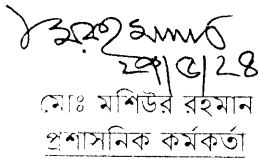 ২৯/৫/২৪
মোঃ মশিউর রহমান
প্রশাসনিক কর্মকর্তা